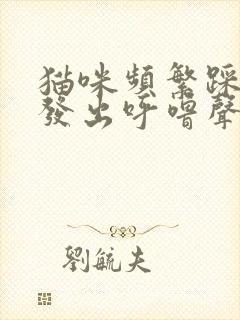 猫咪頻繁踩
發出呼嚕聲
劉毓夫